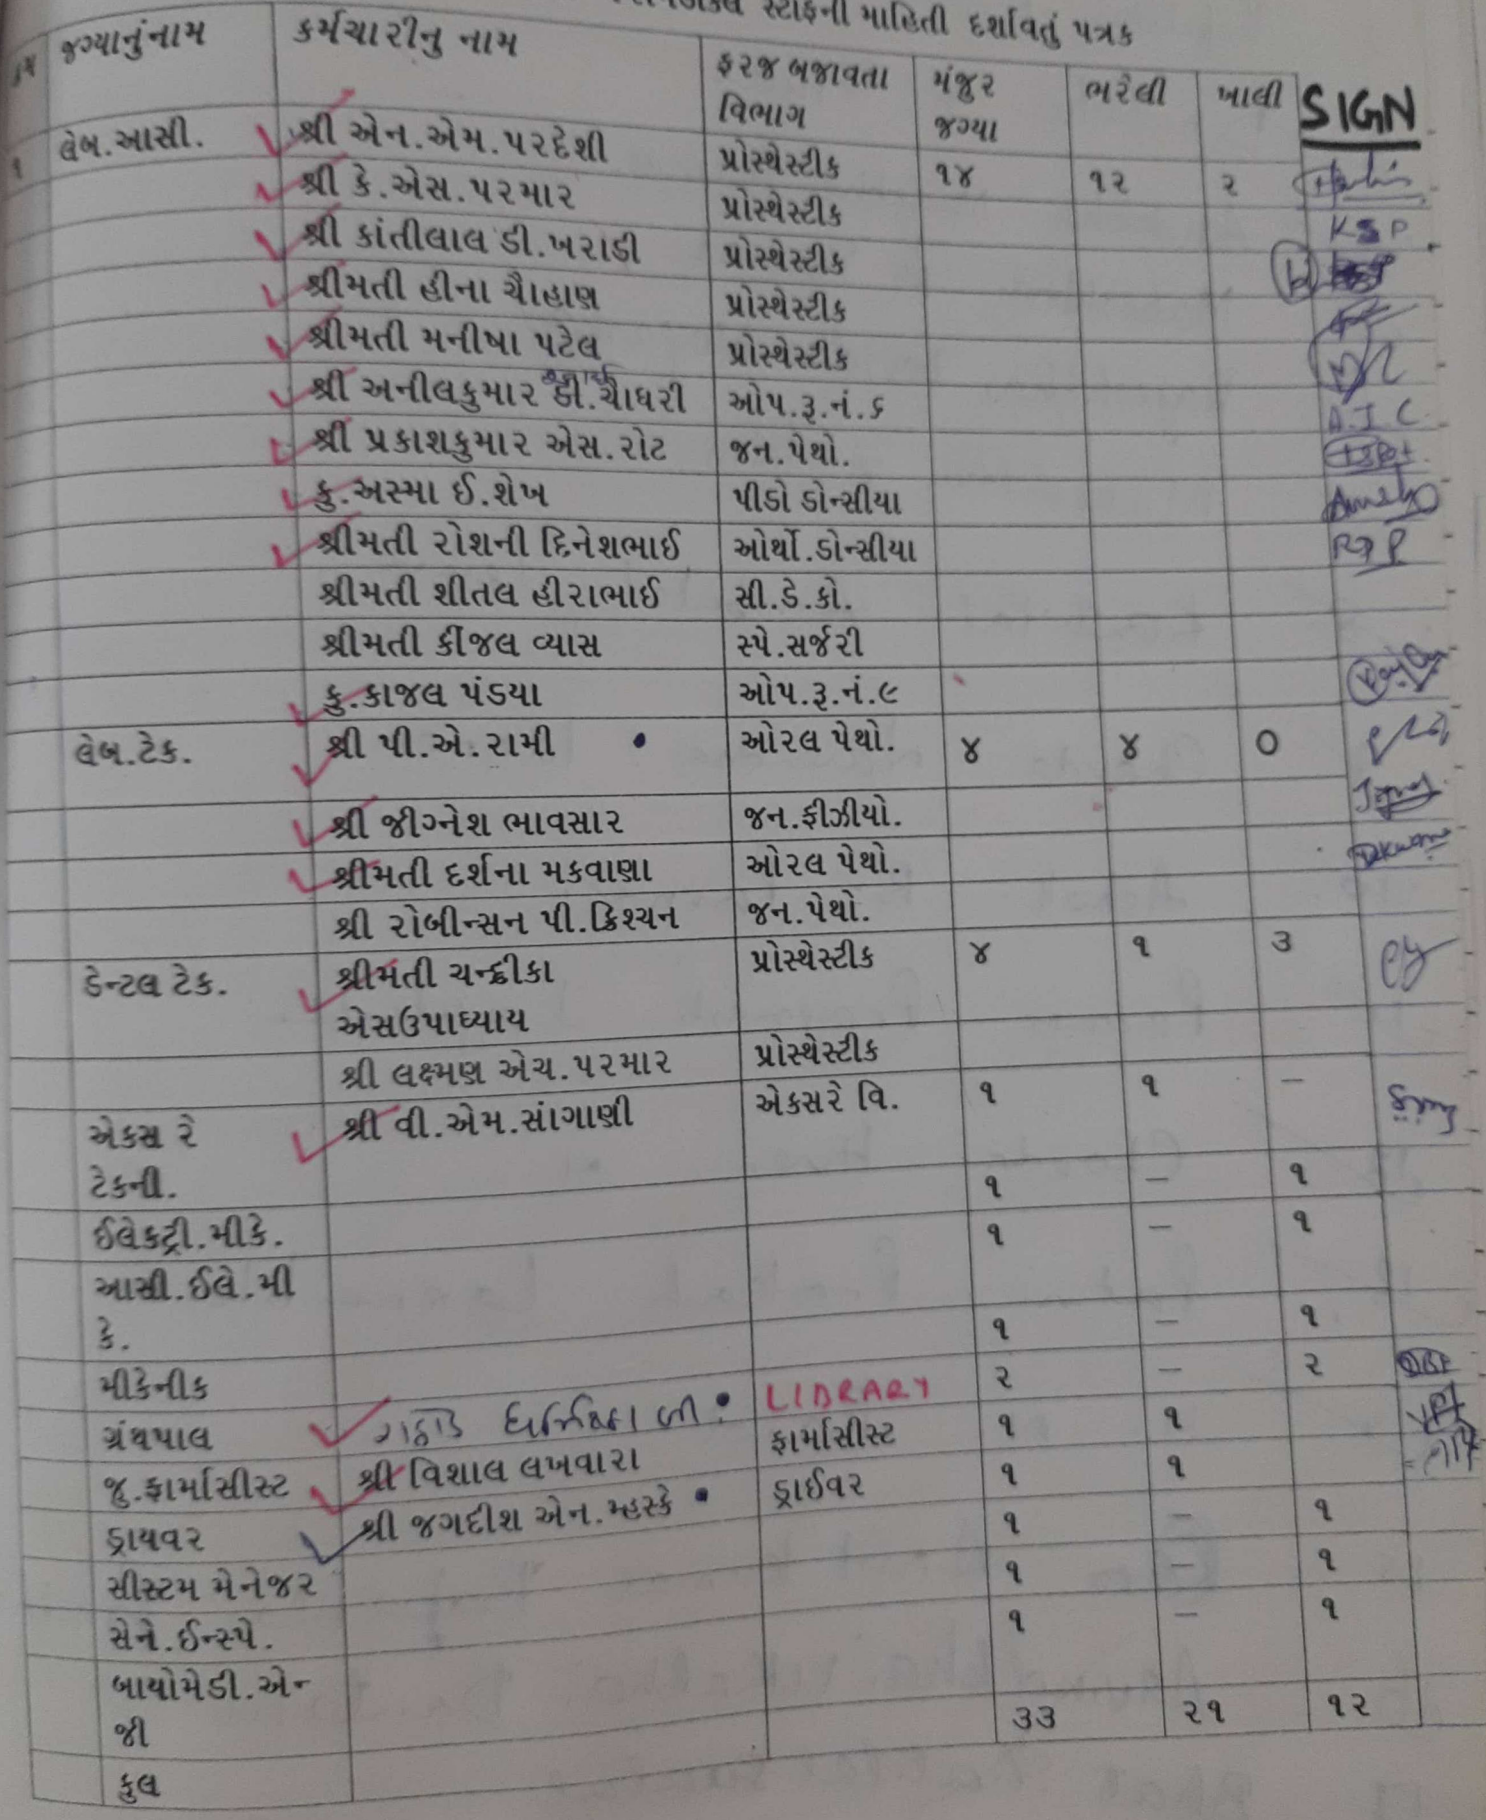 સ્ટાફની માહિતી દર્શાવતું પત્રક
જગ્યાનુંનામ કર્મચારીનુ નામ ફરજ બજાવતા વિભાગ મંજુર જગ્યા ભરેલી ખાલી SIGN
૧ લેબ.આસી. શ્રી એન.એમ.પરદેશી પ્રોસ્થેસ્ટીક ૧૪ ૧૨ ૨
શ્રી કે.એસ.પરમાર પ્રોસ્થેસ્ટીક KSP
શ્રી કાંતીલાલ ડી.ખરાડી પ્રોસ્થેસ્ટીક
શ્રીમતી હીના ચૌહાણ પ્રોસ્થેસ્ટીક
શ્રીમતી મનીષા પટેલ પ્રોસ્થેસ્ટીક
શ્રી અનીલકુમાર ડી.ચૌધરી ઓપ.રૂ.નં.૬ A.I.C.
શ્રી પ્રકાશકુમાર એસ.રોટ જન.પેથો.
કુ.અસ્મા ઈ.શેખ પીડો ડોન્સીયા
શ્રીમતી રોશની દિનેશભાઈ ઓર્થો.ડોન્સીયા
શ્રીમતી શીતલ હીરાભાઈ સી.ડે.કો.
શ્રીમતી કીંજલ વ્યાસ સ્પે.સર્જરી
કુ.કાજલ પંડયા ઓપ.રૂ.નં.૯
લેબ.ટેક. શ્રી પી.એ.રામી ઓરલ પેથો. ૪ ૪ ૦
શ્રી જીગ્નેશ ભાવસાર જન.ફીઝીયો.
શ્રીમતી દર્શના મકવાણા ઓરલ પેથો.
શ્રી રોબીન્સન પી.ક્રિશ્ચન જન.પેથો.
ડેન્ટલ ટેક. શ્રીમતી ચન્દ્રીકા પ્રોસ્થેસ્ટીક ૪ ૧ ૩
એસઉપાધ્યાય
શ્રી લક્ષ્મણ એચ.પરમાર પ્રોસ્થેસ્ટીક
એકસ રે શ્રી વી.એમ.સાંગાણી એકસરે વિ. ૧ ૧ –
ટેકની.
ઈલેકટ્રી.મીકે. ૧ – ૧
આસી.ઈલે.મી ૧ – ૧
કે.
મીકેનીક ૧ – ૧
ગ્રંથપાલ LIBRARY ૨ – ૨
જુ.ફાર્માસીસ્ટ શ્રી વિશાલ લખવારા ફાર્માસીસ્ટ ૧ ૧
ડ્રાયવર શ્રી જગદીશ એન.મ્હસ્કે ડ્રાઈવર ૧ ૧
સીસ્ટમ મેનેજર ૧ – ૧
સેને.ઈન્સ્પે. ૧ – ૧
બાયોમેડી.એન્ ૧ – ૧
જી
કુલ ૩૩ ૨૧ ૧૨